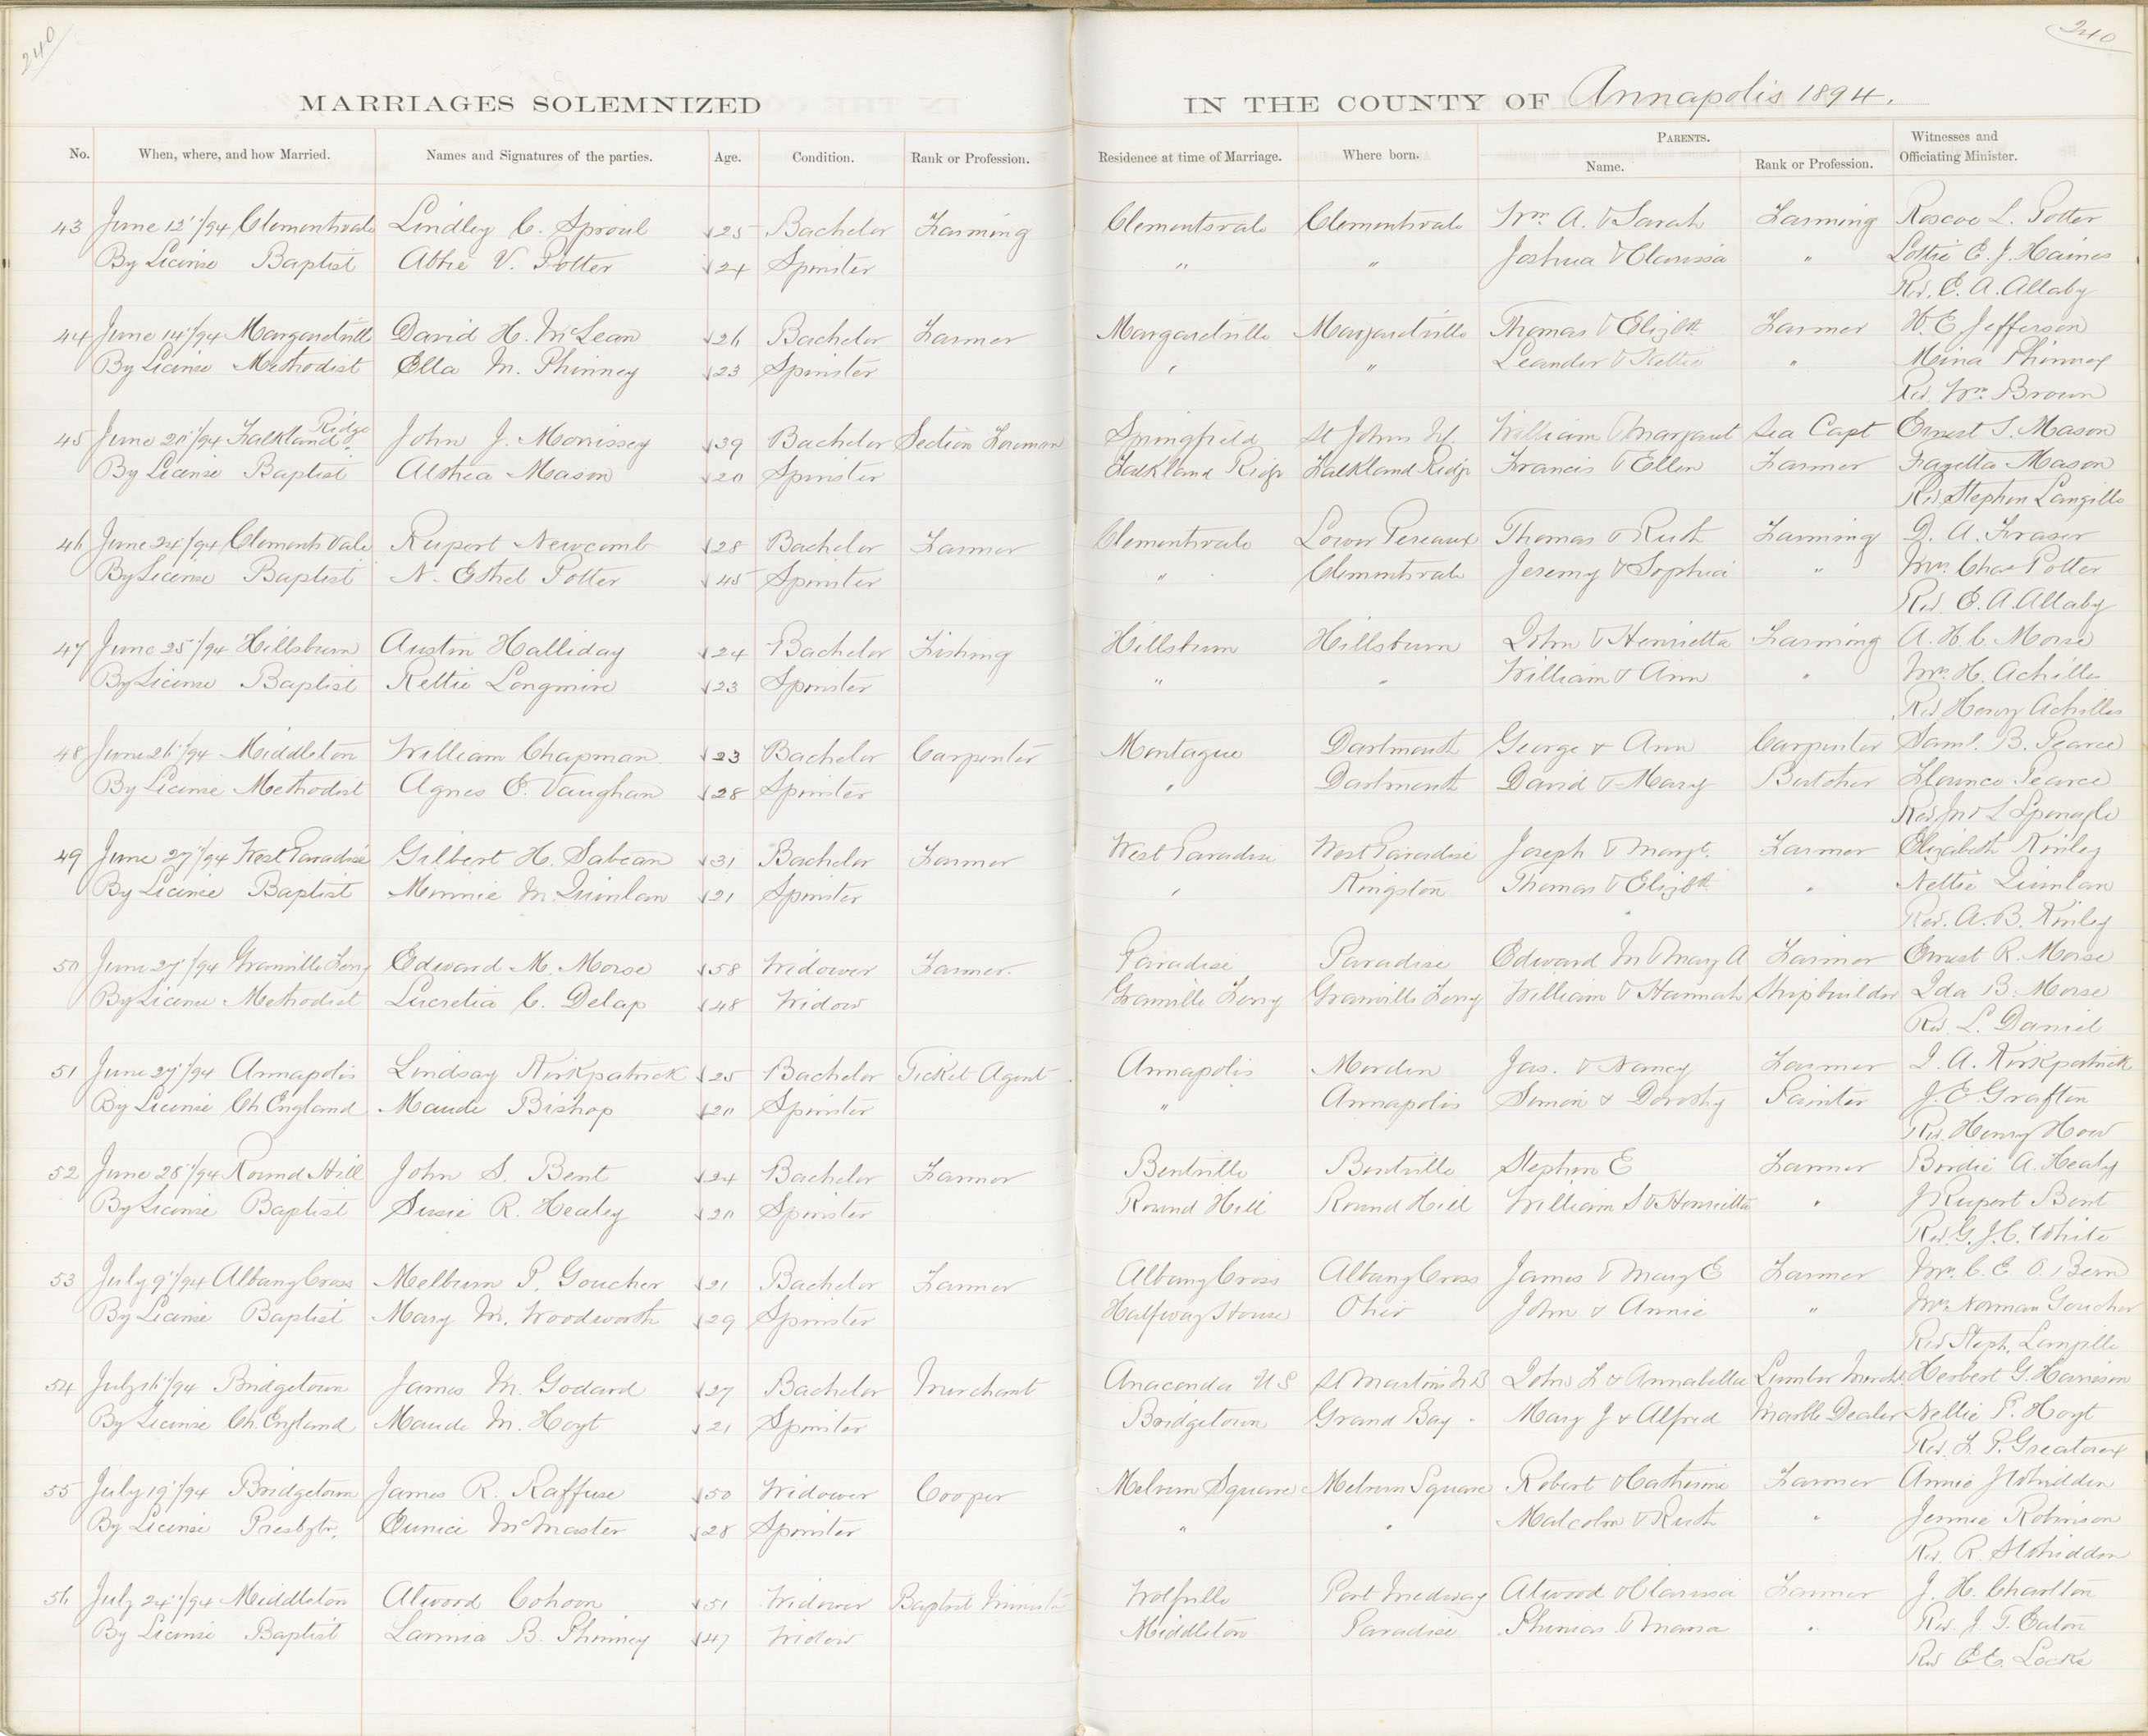 240
240
MARRIAGES SOLEMNIZED IN THE COUNTY OF Annapolis 1894.
No. When, where, and how Married. Names and Signatures of the parties. Age. Condition. Rank or Profession. Residence at time of Marriage. Where born. PARENTS. Name. Rank or Profession. Witnesses and Officiating Minister.
43 June 12"/94 Clementsvale Lindley C. Sproul 25 Bachelor Farming Clementsvale Clementsvale Wm A. & Sarah Farming Roscoe L. Potter
By License Baptist Abbie V. Potter 24 Spinster " " Joshua & Clarissa " Lottie E. J. Haines
Rev. E. A. Allaby
44 June 14"/94 Margaretville David H. McLean 26 Bachelor Farmer Margaretville Margaretville Thomas & Elizbth Farmer W. E. Jefferson
By License Methodist Ella M. Phinney 23 Spinster " " Leander & " Mina Phinney
Rev. Wm Brown
45 June 20"/94 Falkland Ridge John J. Morrissey 39 Bachelor Section Foreman Springfield St Johns Nf. William & Margaret Sea Capt Ernest S. Mason
By License Baptist Althea Mason 20 Spinster Falkland Ridge Falkland Ridge Francis & Ellen Farmer Mason
Rev Stephen Langille
46 June 24"/94 Clements Vale Rupert Newcomb 28 Bachelor Farmer Clementsvale Lower Pereaux Thomas & Ruth Farming D. A. Fraser
By License Baptist N. Ethel Potter 45 Spinster " Clementsvale Jeremy & Sophia " Mrs. Chas Potter
Rev. E. A. Allaby
47 June 25"/94 Hillsburn Austin Halliday 24 Bachelor Fishing Hillsburn Hillsburn John & Henrietta Farming A. H. C. Morse
By License Baptist Rettie Longmire 23 Spinster " " William & Ann " Mrs. H. Achilles
Rev Henry Achilles
48 June 26"/94 Middleton William Chapman 23 Bachelor Carpenter Montague Dartmouth George & Ann Carpenter Saml. B. Pearce
By License Methodist Agnes E. Vaughan 28 Spinster " Dartmouth David & Mary Butcher Florence Pearce
Rev
49 June 27"/94 West Paradise Gilbert H. Sabean 31 Bachelor Farmer West Paradise West Paradise Joseph & Margt. Farmer Elizabeth Kinley
By License Baptist Minnie M. Quinlan 21 Spinster " Kingston Thomas & Elizbth " Nettie Quinlan
Rev. A. B. Kinley
50 June 27"/94 Granville Ferry Edward M. Morse 58 Widower Farmer. Paradise Paradise Edward M & Mary A Farmer Ernest R. Morse
By License Methodist Lucretia C. Delap 48 Widow Granville Ferry Granville Ferry William & Hannah Shipbuilder Ida B. Morse
Rev. L. Daniel
51 June 27"/94 Annapolis Lindsay Kirkpatrick 25 Bachelor Ticket Agent Annapolis Morden Jas. & Nancy Farmer I. A. Kirkpatrick
By License Ch England Maude Bishop 20 Spinster " Annapolis Simon & Dorothy Painter J. E. Grafton
Rev. Henry How
52 June 28"/94 Round Hill John S. Bent 24 Bachelor Farmer Bentville Bentville Stephen E Farmer Birdie A. Healy
By License Baptist Susie R. Healey 20 Spinster Round Hill Round Hill William S & Henrietta " J Rupert Bent
Rev. G. J. C. White
53 July 9"/94 Albany Cross Melburn P. Goucher 21 Bachelor Farmer Albany Cross Albany Cross James & Mary E Farmer Mr. C. E. O. Bern
By License Baptist Mary M. Woodworth 29 Spinster Halfway House Ohio John & Annie " Mrs Norman Goucher
Rev Steph. Langille
54 July 16"/94 Bridgetown James M. Godard 27 Bachelor Merchant Anaconda U S St Martins N B John F & Annabella Lumber Mercht. Herbert G. Harrison
By License Ch. England Maude M. Hoyt 21 Spinster Bridgetown Grand Bay Mary J & Alfred Marble Dealer Nellie P. Hoyt
Rev. F. P. Greatorex
55 July 19"/94 Bridgetown James R. Raffuse 50 Widower Cooper Melvern Square Melvern Square Robert & Catherine Farmer Annie J Whidden
By License Presbytr. Eunice McMaster 28 Spinster " " Malcolm & Ruth " Jennie Robinson
Rev. R. S Whidden
56 July 24"/94 Middleton Atwood Cohoon 51 Widower Baptist Minister Wolfville Port Medway Atwood & Clarissa Farmer J. H. Charlton
By License Baptist Lavinia B. Phinney 47 Widow Middleton Paradise Phineas & Maria " Rev. J. T. Eaton
Rev E E. Locke